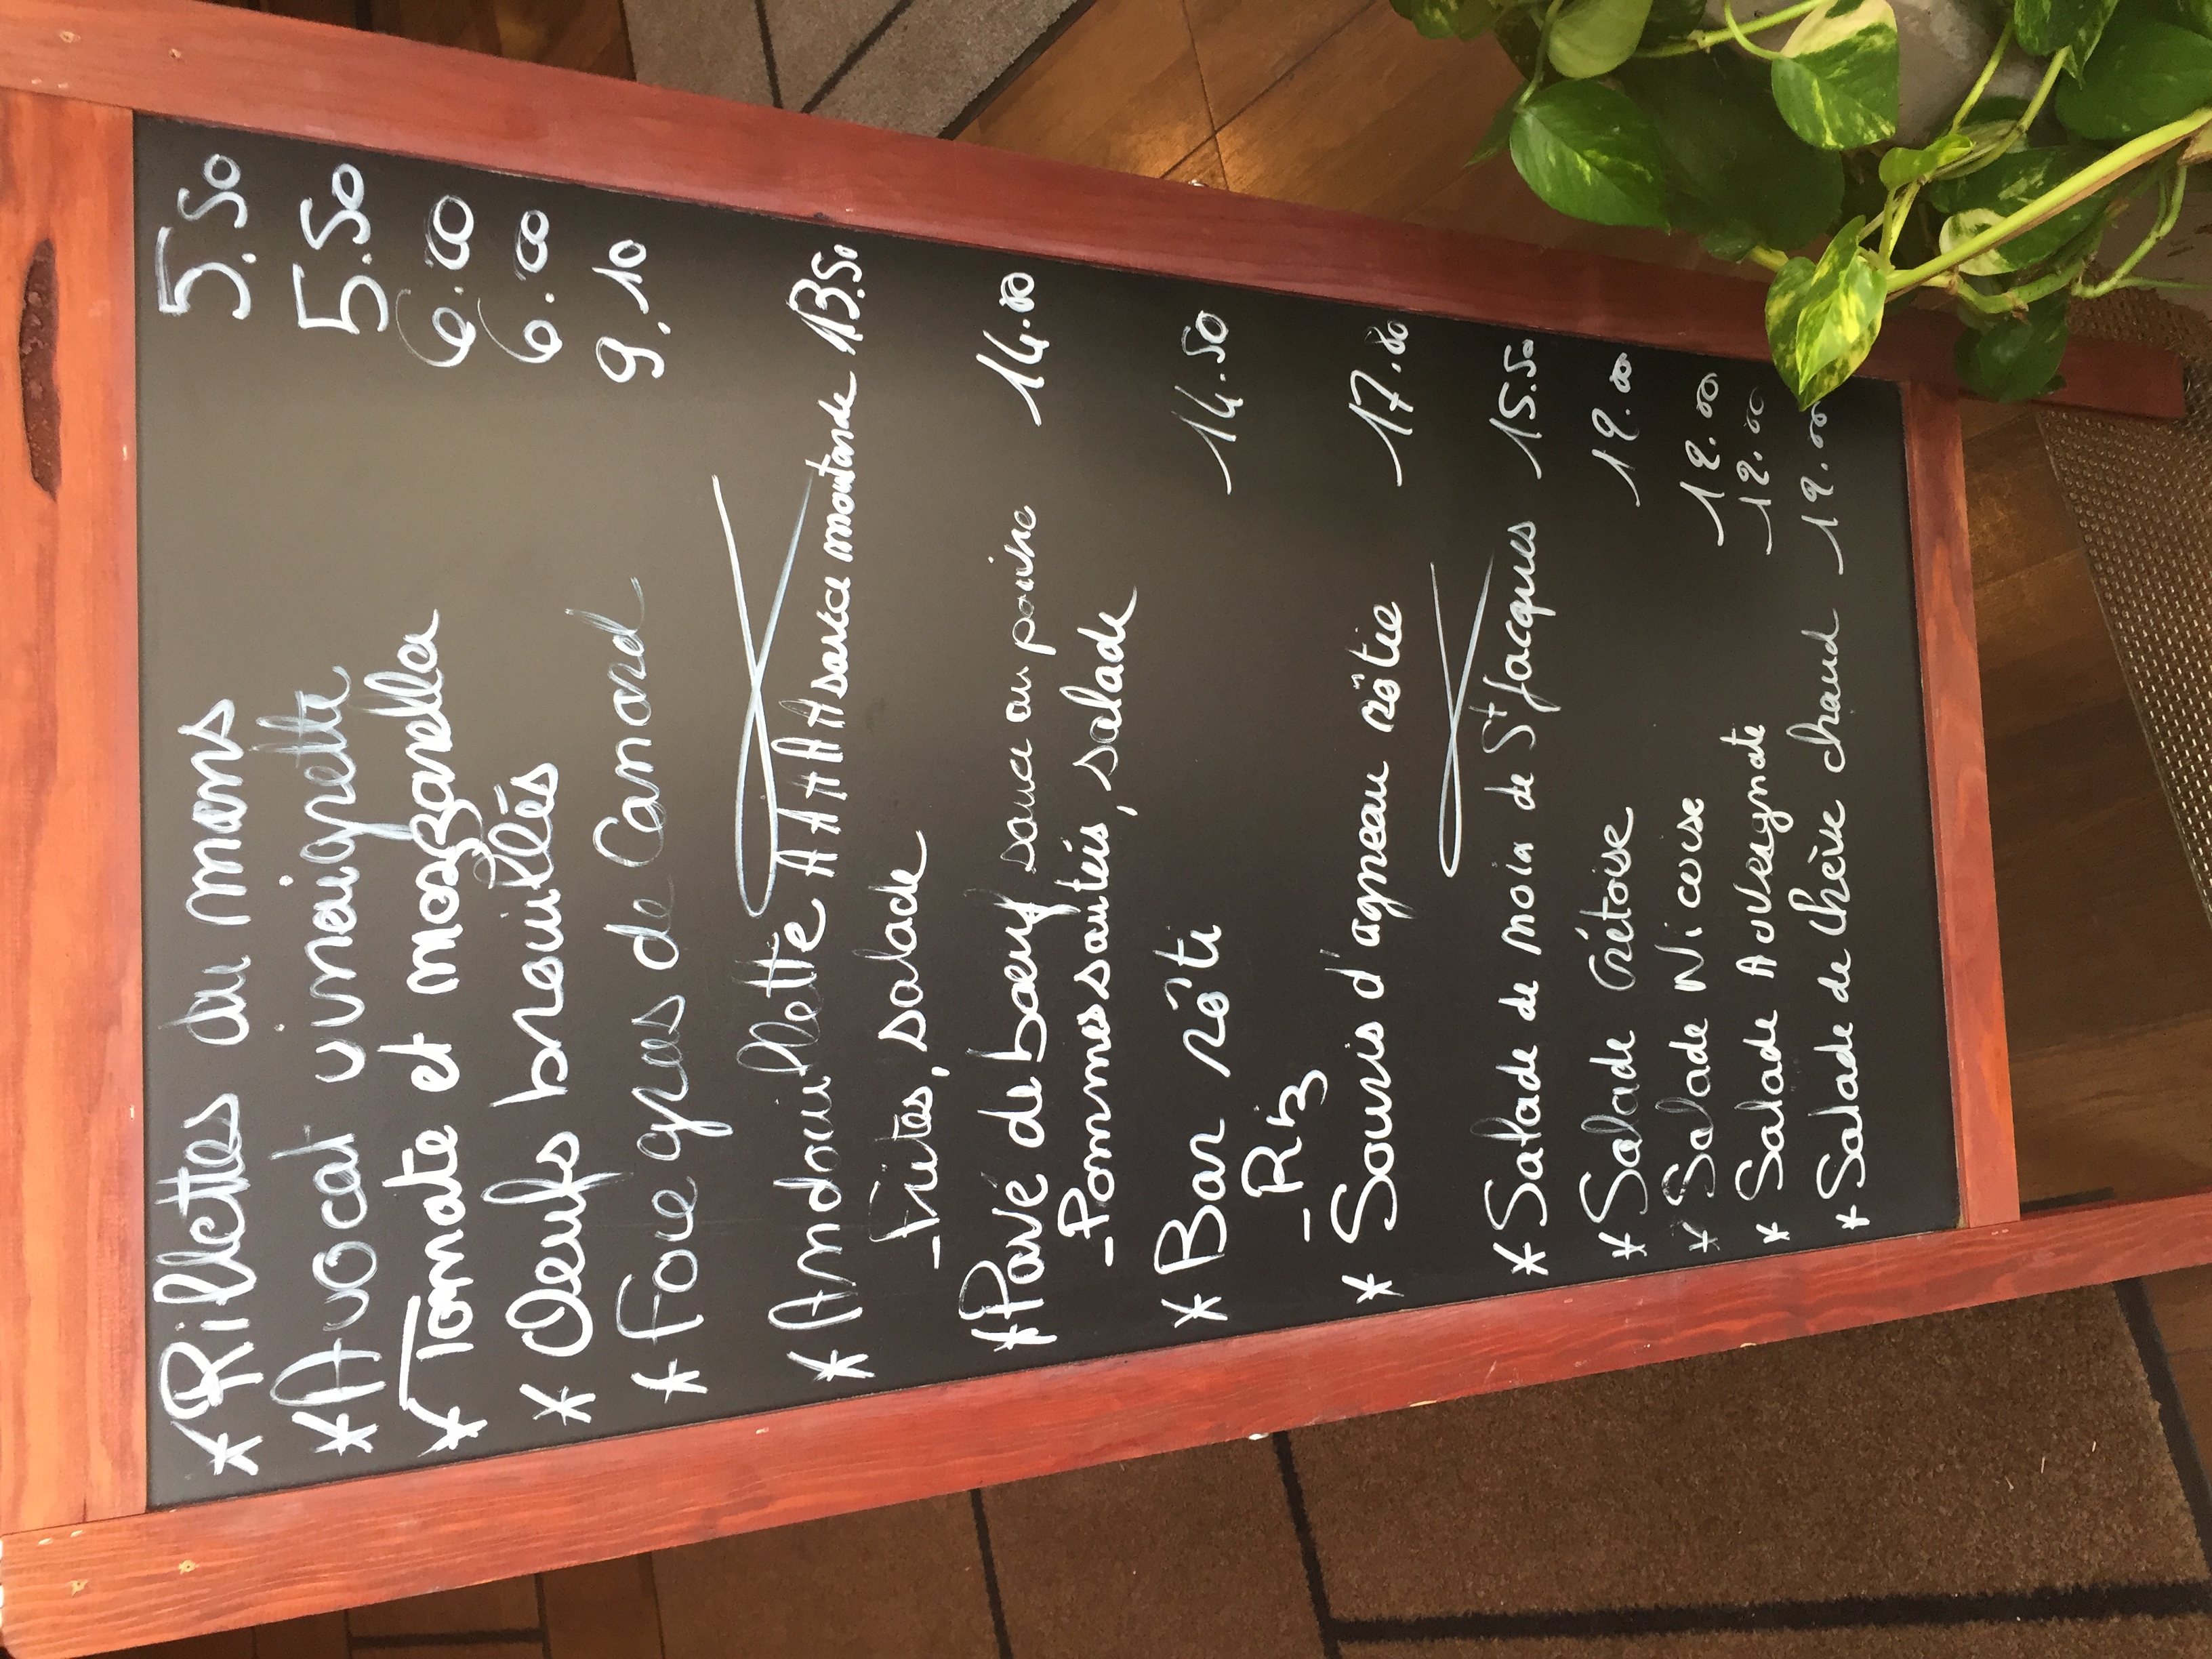 * Rillettes du mans 5.50
* Avocat vinaigrette 5.50
* Tomate et mozzarella 6.00
* Oeufs brouillés 6.00
* Foie gras de Canard 9.10
* Andouillette AAAAA sauce moutarde 13.50
- Frites, salade
* Pavé de boeuf sauce au poivre 14.00
- Pommes sautées, salade
* Bar rôti 14.50
- Riz
* Souris d'agneau rôtie 17.80
* Salade de noix de St Jacques 15.50
* Salade Crétoise 12.00
* Salade Nicoise 12.00
* Salade Auvergnate 12.00
* Salade de Chèvre chaud 12.00